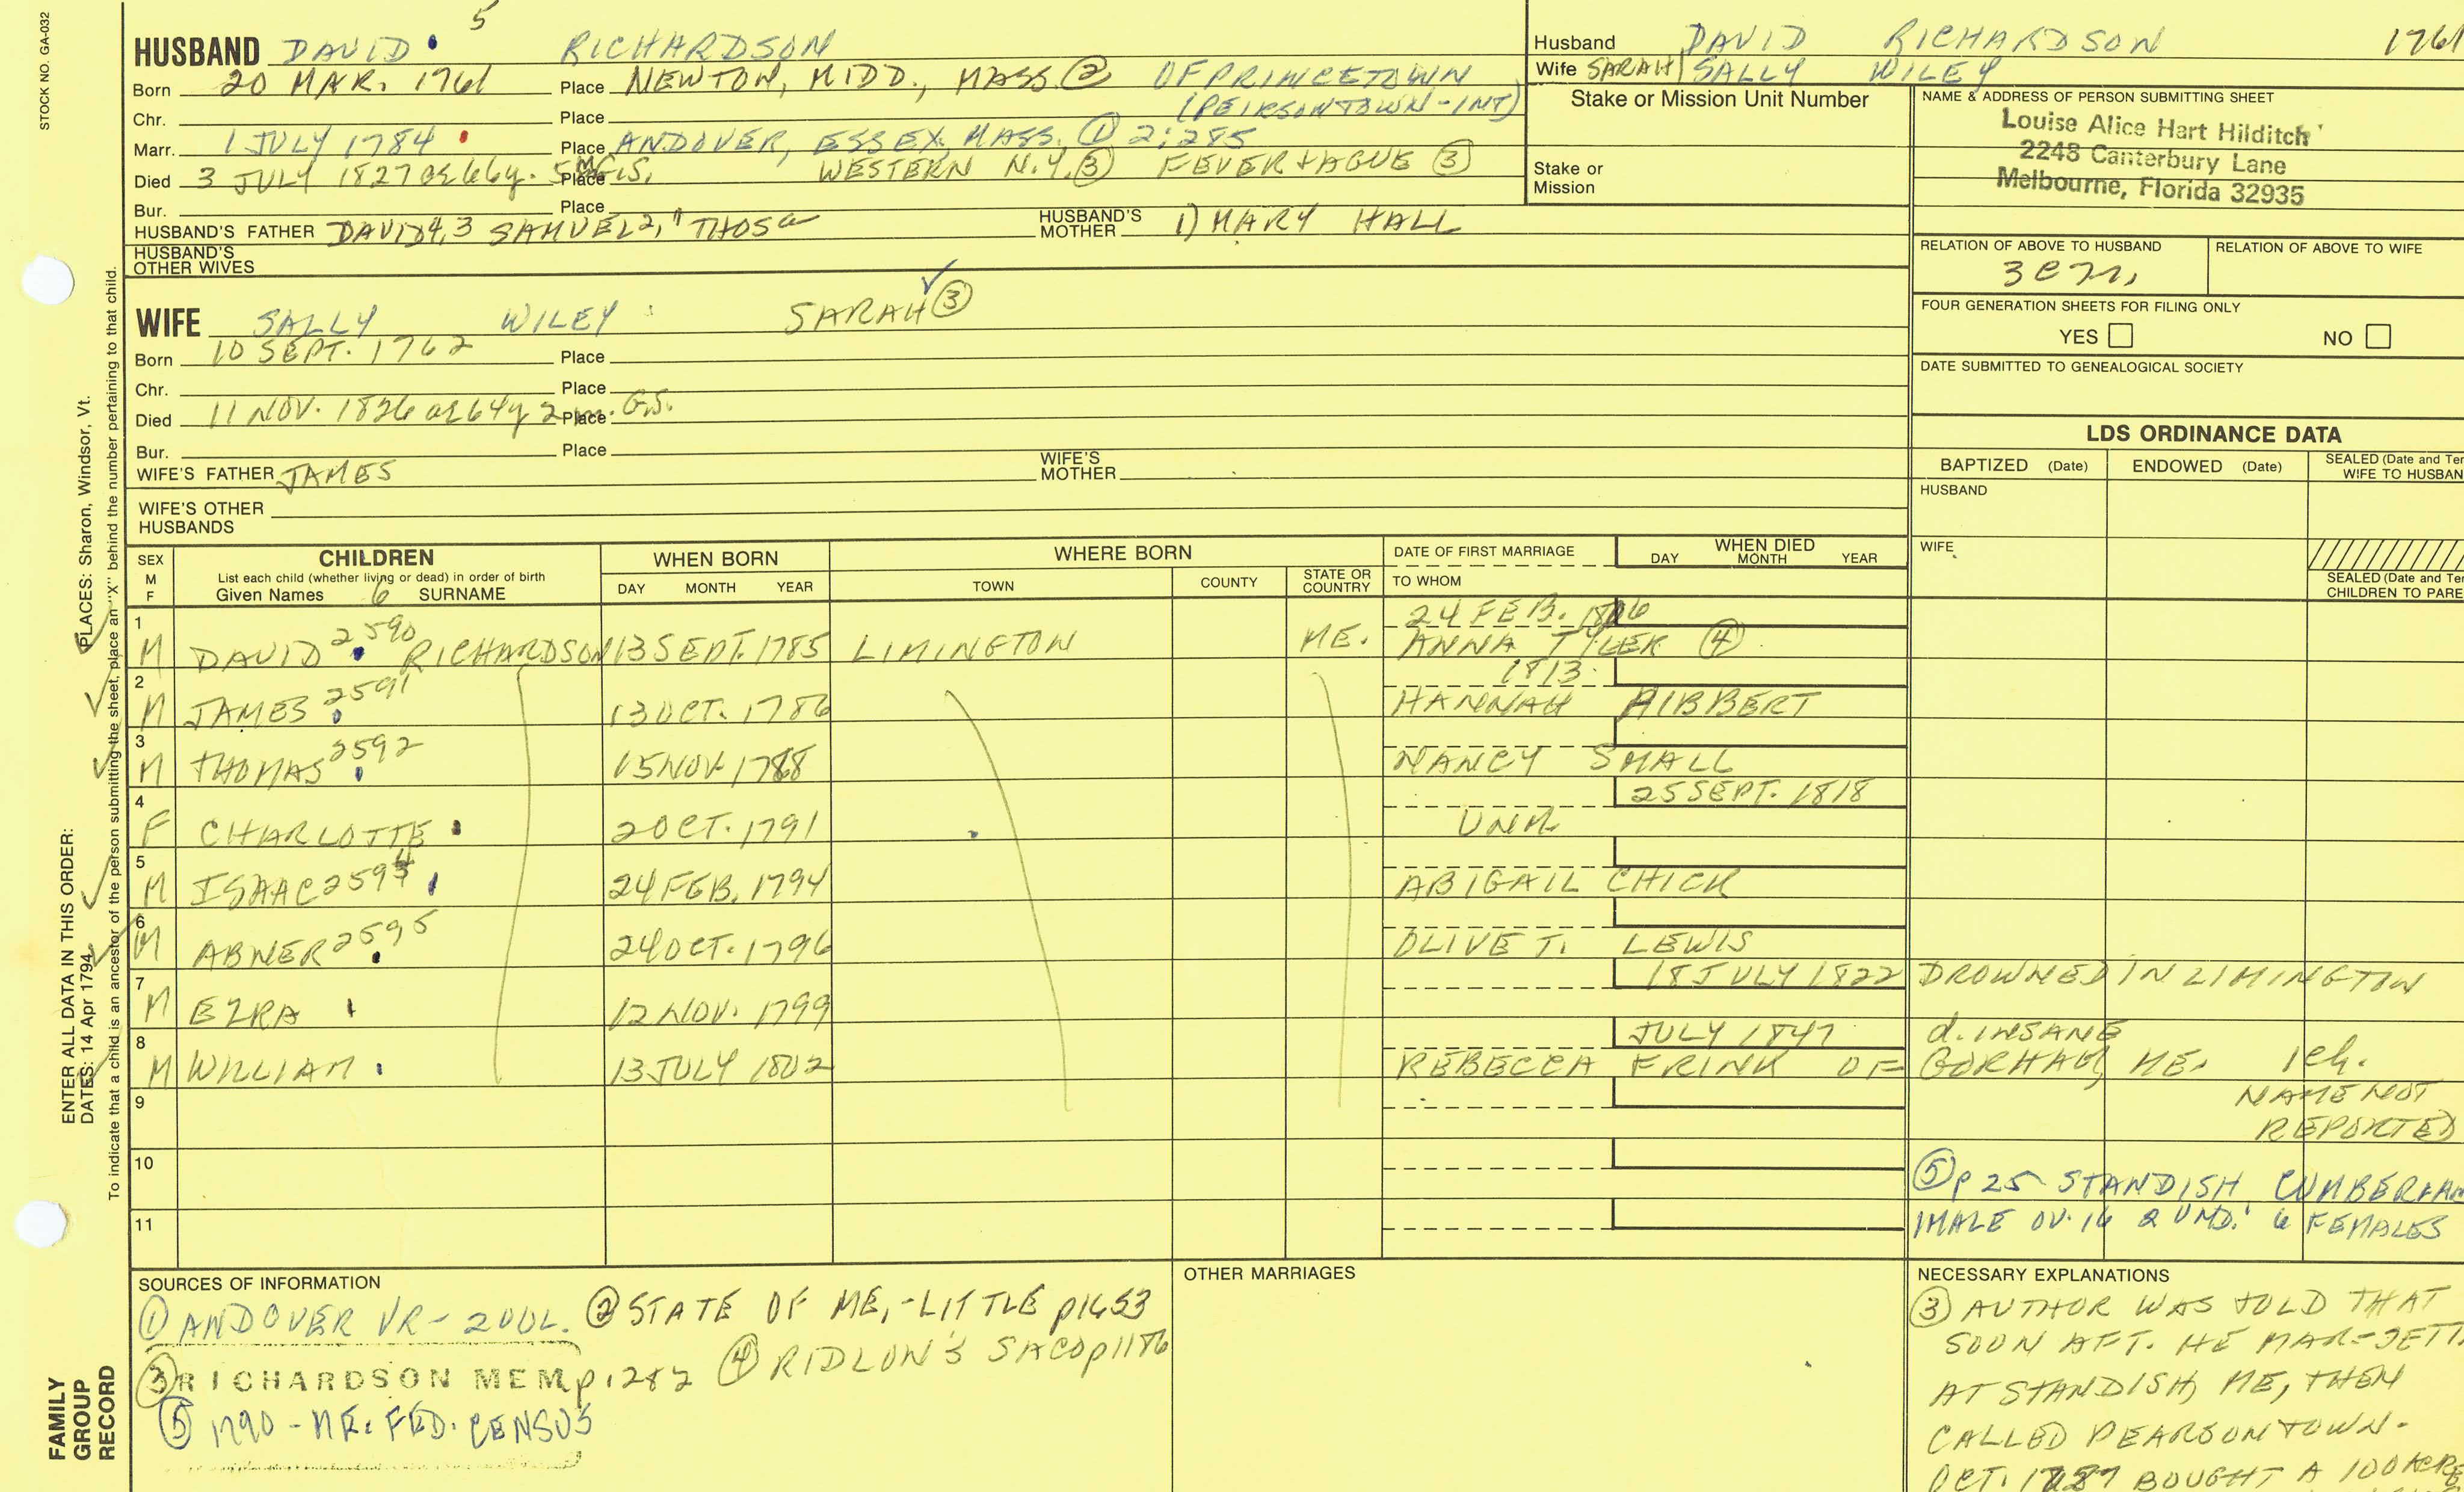 STOCK NO. GA-032
5
HUSBAND DAVID RICHARDSON
Born 20 MAR. 1761 Place NEWTON, MIDD., MASS. ② OF PRINCETOWN
(PEIRSONTOWN-INT)
Chr. Place
Marr. 1 JULY 1784 Place ANDOVER, ESSEX, MASS. ① 2:285
Died 3 JULY 1827 ae 66y. 5M G.S. Place WESTERN N.Y. ③ FEVER + AGUE ③
Bur. Place
HUSBAND'S FATHER DAVID4,3 SAMUEL2,1 THOS HUSBAND'S MOTHER 1) MARY HALL
HUSBAND'S OTHER WIVES
WIFE SALLY WILEY SARAH ③
Born 10 SEPT. 1762 Place
Chr. Place
Died 11 NOV. 1826 ae 64y 2m. G.S. Place
Bur. Place
WIFE'S FATHER JAMES WIFE'S MOTHER
WIFE'S OTHER HUSBANDS
Husband DAVID RICHARDSON 1761
Wife SARAH SALLY WILEY
Stake or Mission Unit Number
Stake or Mission
NAME & ADDRESS OF PERSON SUBMITTING SHEET
Louise Alice Hart Hilditch
2248 Canterbury Lane
Melbourne, Florida 32935
RELATION OF ABOVE TO HUSBAND RELATION OF ABOVE TO WIFE
FOUR GENERATION SHEETS FOR FILING ONLY
YES NO
DATE SUBMITTED TO GENEALOGICAL SOCIETY
LDS ORDINANCE DATA
BAPTIZED (Date) ENDOWED (Date) SEALED (Date and Ter
WIFE TO HUSBAN
HUSBAND
WIFE
SEALED (Date and Ter
CHILDREN TO PARE
SEX M F CHILDREN WHEN BORN WHERE BORN DATE OF FIRST MARRIAGE WHEN DIED
List each child (whether living or dead) in order of birth
Given Names 6 SURNAME DAY MONTH YEAR TOWN COUNTY STATE OR COUNTRY TO WHOM DAY MONTH YEAR
1 24 FEB. 1806
M DAVID 2590 RICHARDSON 13 SEPT. 1785 LIMINGTON ME. ANNA TYLER ④
2 1813
M JAMES 2591 13 OCT. 1786 HANNAH HIBBERT
3
M THOMAS 2592 15 NOV. 1788 NANCY SMALL
4 25 SEPT. 1818
F CHARLOTTE 2 OCT. 1791 UNM.
5
M ISAAC 2594 24 FEB. 1794 ABIGAIL CHICK
6
M ABNER 2595 24 OCT. 1796 OLIVE T. LEWIS
7 18 JULY 1822 DROWNED IN LIMINGTON
M EZRA 12 NOV. 1799
8 JULY 1847 d. INSANE
M WILLIAM 13 JULY 1802 REBECCA FRINK OF GORHAM, ME. 1ch.
NAME NOT
REPORTED
9
10
11
⑤ p 25 STANDISH, CUMBERLAN
1 MALE OV. 16 2 UND. 6 FEMALES
SOURCES OF INFORMATION
① ANDOVER VR - 2 VOL. ② STATE OF ME, - LITTLE p1653
③ RICHARDSON MEM p. 282 ④ RIDLON'S SACO p1186
⑤ 1790 - ME. FED. CENSUS
OTHER MARRIAGES
NECESSARY EXPLANATIONS
③ AUTHOR WAS TOLD THAT
SOON AFT. HE MAR - SETT
AT STANDISH, ME, THEN
CALLED PEARSONTOWN -
OCT. 1787 BOUGHT A 100 ACRE
ENTER ALL DATA IN THIS ORDER:
DATES: 14 Apr 1794 PLACES: Sharon, Windsor, Vt.
To indicate that a child is an ancestor of the person submitting the sheet, place an "X" behind the number pertaining to that child.
FAMILY
GROUP
RECORD